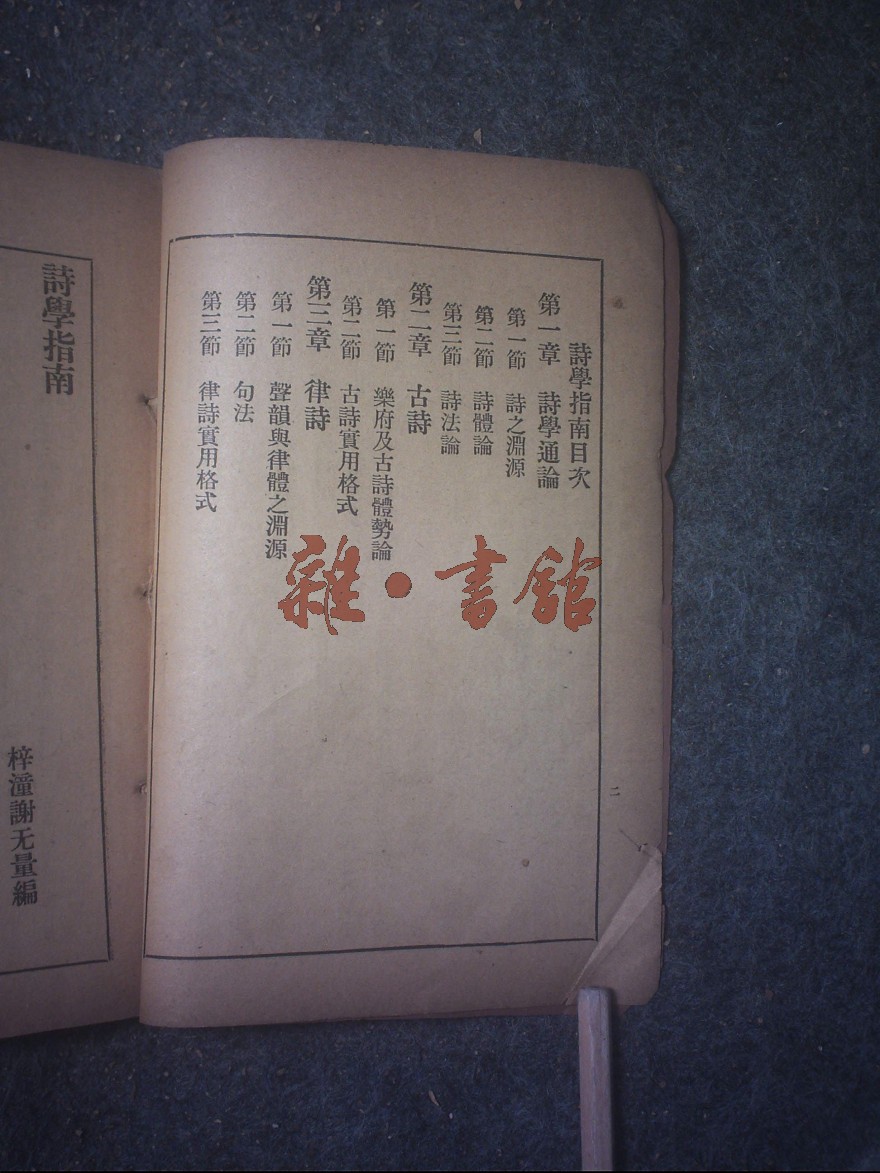 詩學指南目次
第一章　詩學通論
第一節　詩之淵源
第二節　詩體論
第三節　詩法論
第二章　古詩
第一節　樂府及古詩體勢論
第二節　古詩實用格式
第三章　律詩
第一節　聲韻與律體之淵源
第二節　句法
第三節　律詩實用格式
二
詩學指南
梓潼謝无量編
雜·書館